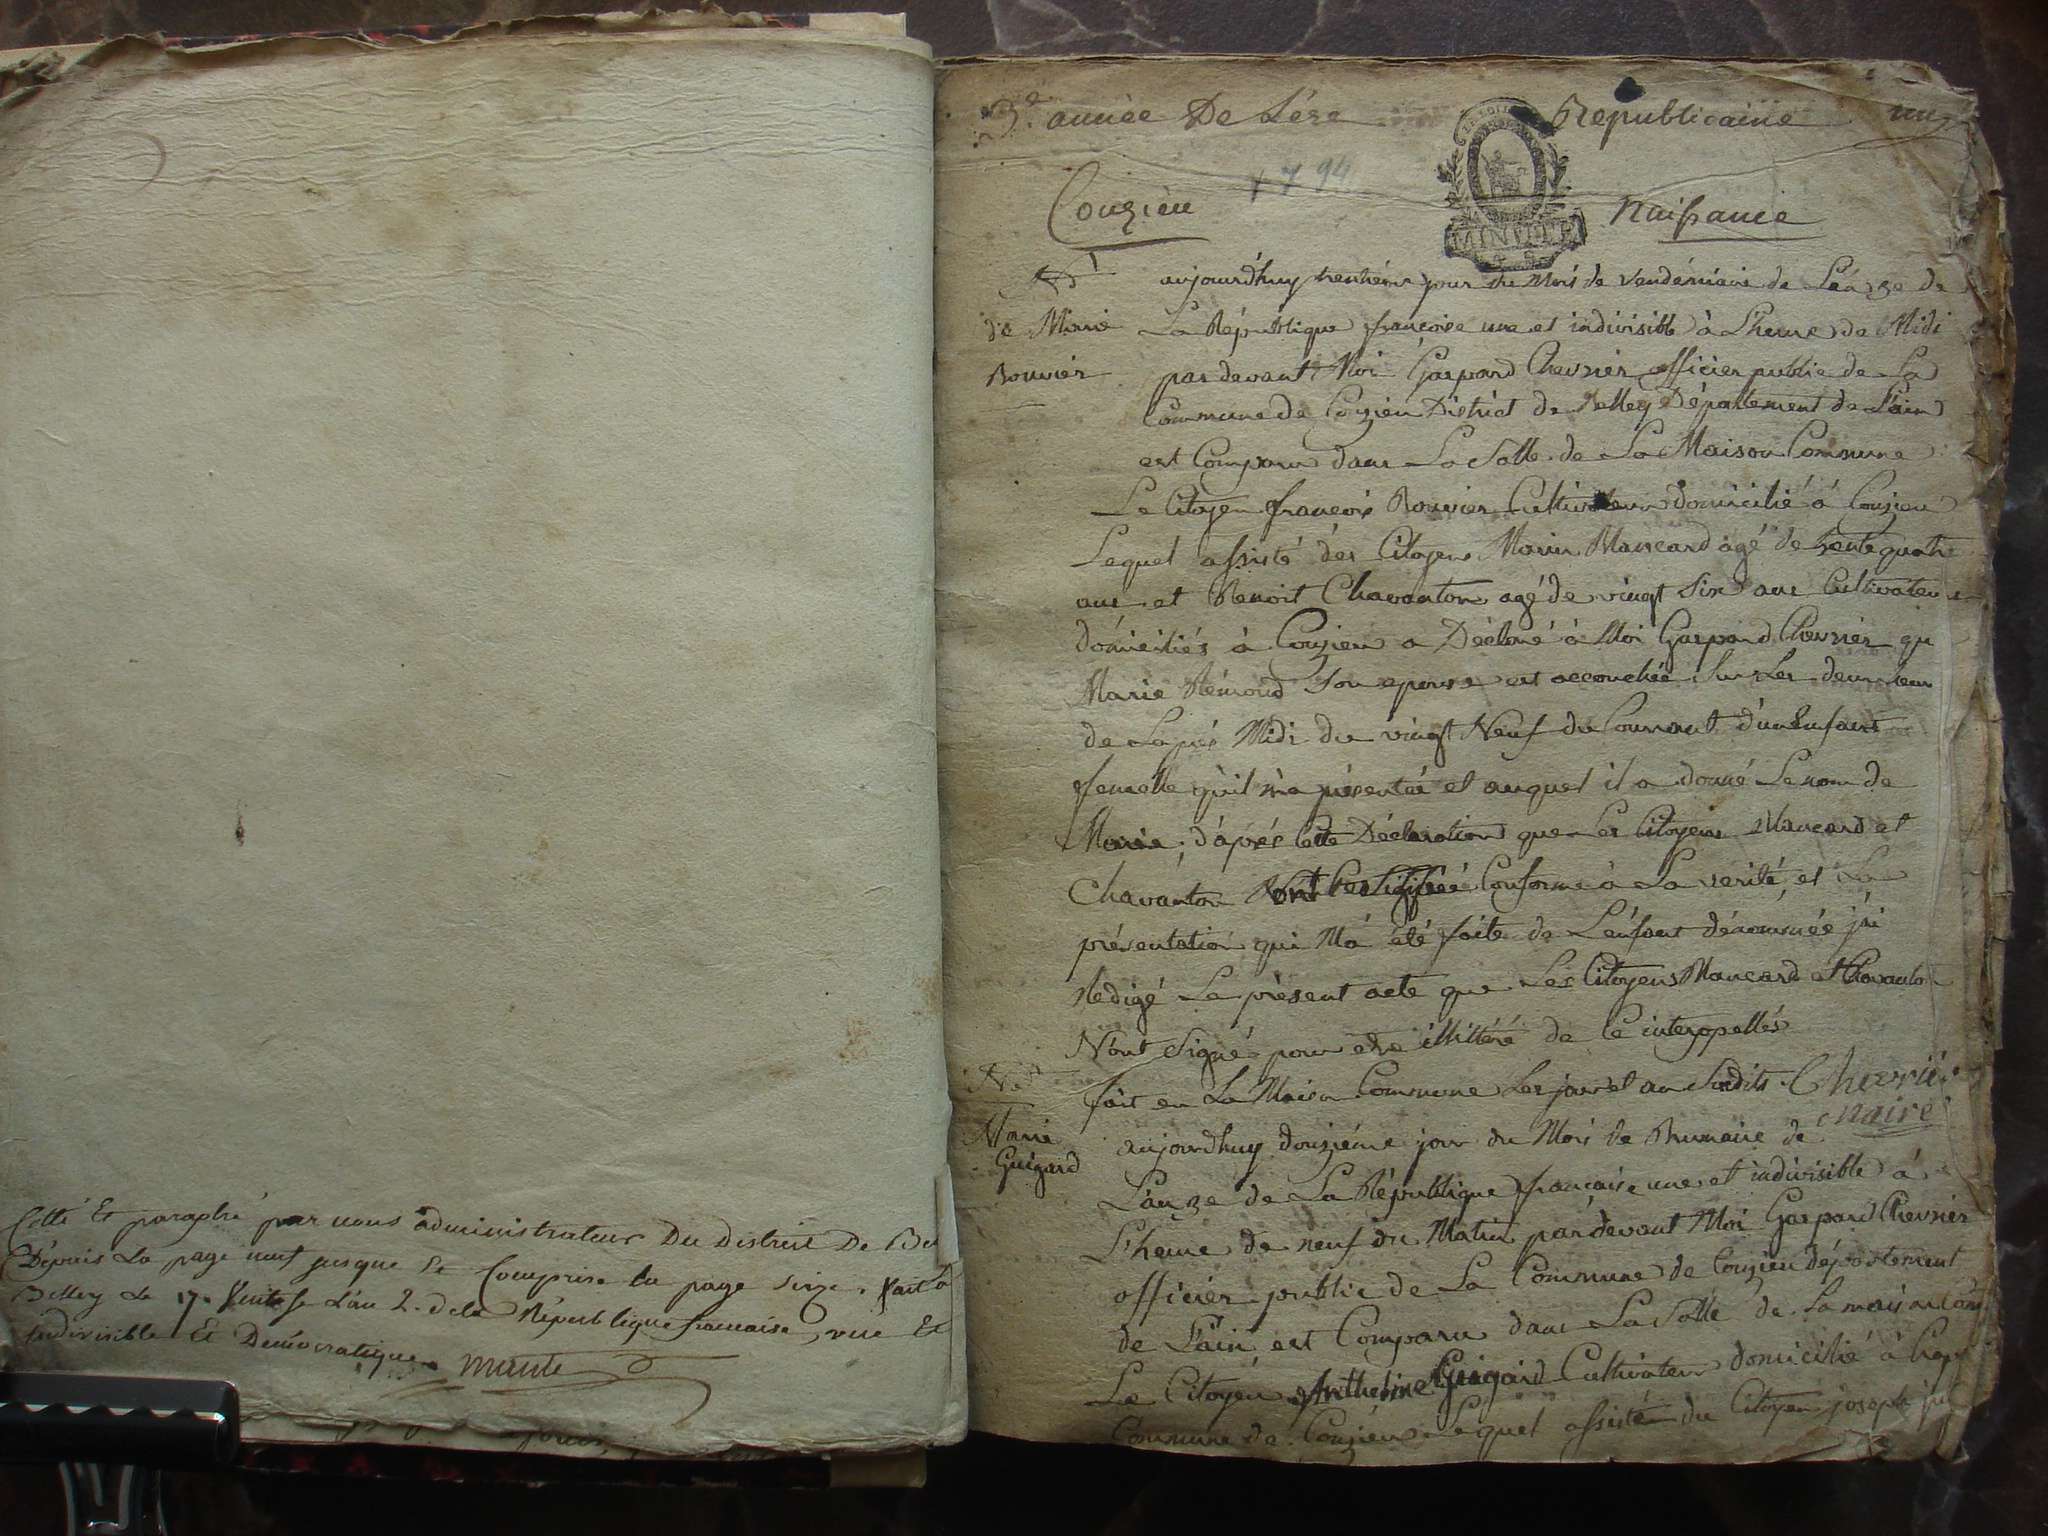 Cotté Et paraphé par nous administrateur Du District De Bel
Depuis La page neuf jusque Et Comprise La page seize. fait à
Belley Le 17. l'an 2. de la République francaise, une Et
Indivisible Et Démocratique
3e année De L'ére Republicaine un
1794
Couzieu Naissance
MINUTE
No 1
de Marie
Bouvier
aujourd'huy trentiéme jour du Mois de Vendémiaire de L'an 3e de
La République francoise une et indivisible à L'heure de Midi
par devant Moi Gaspard Chevrier officier public de La
Commune de Couzieu District de Belley Département de L'ain
est Comparu dans La Salle de La Maison Commune
Le Citoyen francois Bouvier Cultivateur domicilié à Couzieu
Lequel assisté des Citoyens Marin Mancard agé de trente quatre
ans et Benoit Chavanton agé de vingt Six ans Cultivateurs
domiciliés à Couzieu a Déclaré à Moi Gaspard Chevrier qu
Marie Rémond Son epouse est accouchée Sur Les deux heur
de Laprés Midi du vingt Neuf du Courrant d'un Enfant
femelle qu'il m'a présentée et auquel il a donné Le nom de
Marie, d'aprés Cette Déclaration que Les Citoyens Mancard et
Chavanton Conforme à La verité, et La
présentation qui M'a été faite de L'enfant dénommée j'ai
Redigé Le présent acte que Les Citoyens Mancard et Chavanton
N'ont Signé pour etre illitéré de Ce interpellés
fait en La Maison Commune Les jour et an Susdits Chevrier
maire
No
Marie
Guigard
aujourdhuy douziéme jour du Mois de Brumaire de
L'an 3e de La République francaise une et indivisible à
L'heure de neuf du Matin par devant Moi Gaspard Chevrier
officier public de La Commune de Couzieu département
de L'ain est Comparu dans La Salle de La maison Com
Le Citoyen Anthelme Guigard Cultivateur domicilié à
Commune de Couzieu Lequel assisté du Citoyen joseph